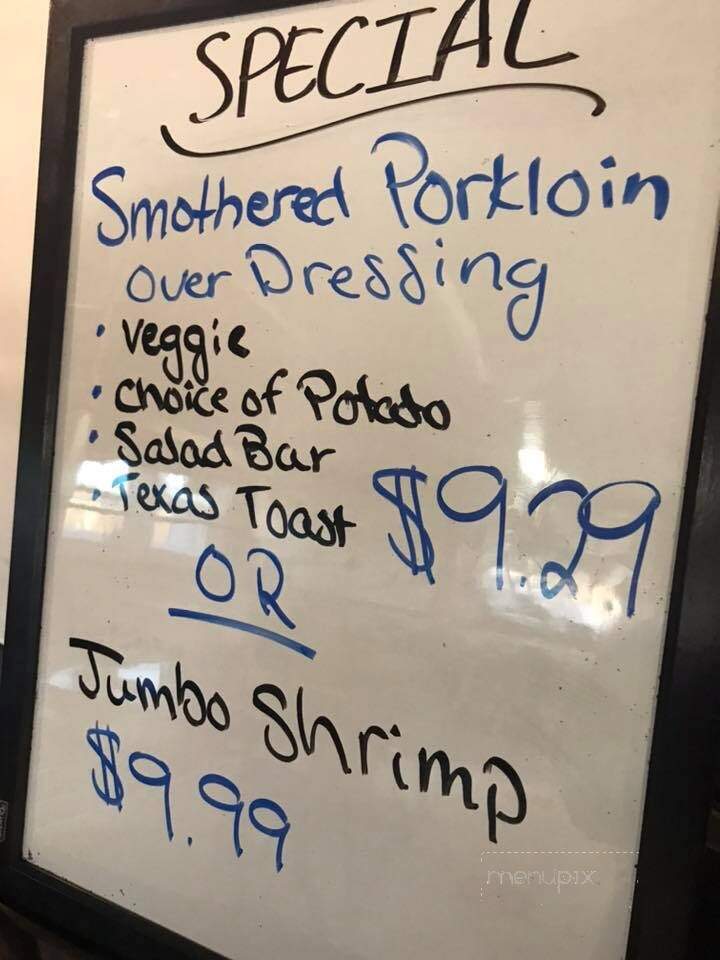 SPECIAL
Smothered Porkloin
over Dressing
• veggie
• choice of Potato
• Salad Bar
• Texas Toast $9.29
OR
Jumbo Shrimp
$9.99
menupix